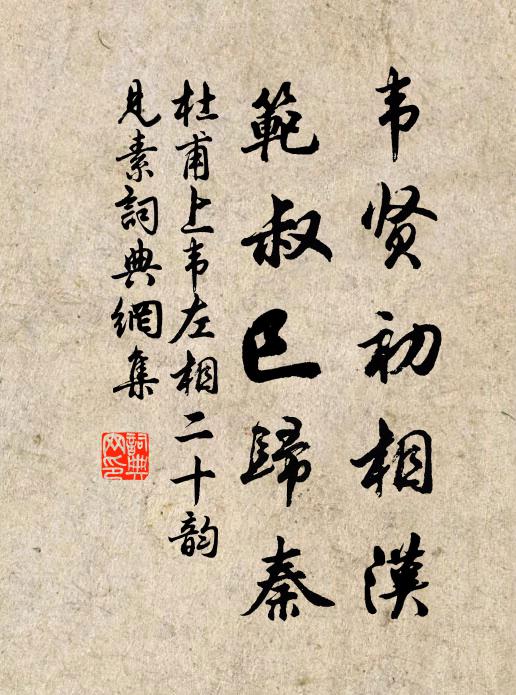 韦贤初相漢
範叔已歸秦
杜甫上韦左相二十韵
見素詞典網集
詞典網印